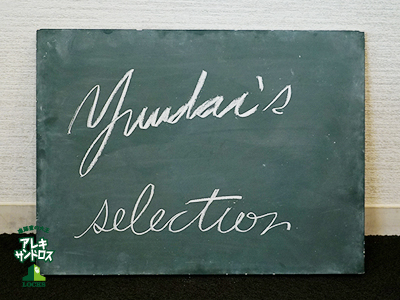 Yuudai's
selection
アレキ
サンドロス
LOCKS